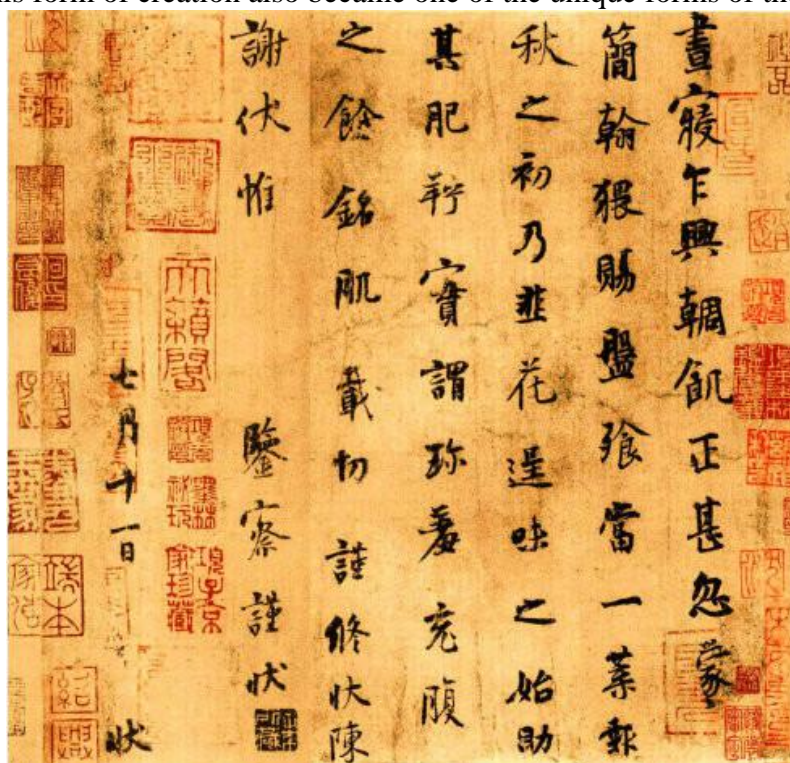 is form of creation also became one of the unique forms of
晝寢乍興輖飢正甚忽蒙
簡翰猥賜盤飧當一葉報
秋之初乃韭花逞味之始助
其肥羜實謂珍羞充腹
之餘銘肌載切謹修狀陳
謝伏惟 鑒察謹狀
七月十一日 狀
天籟閣
墨林秘玩
項子京家珍藏
紹興